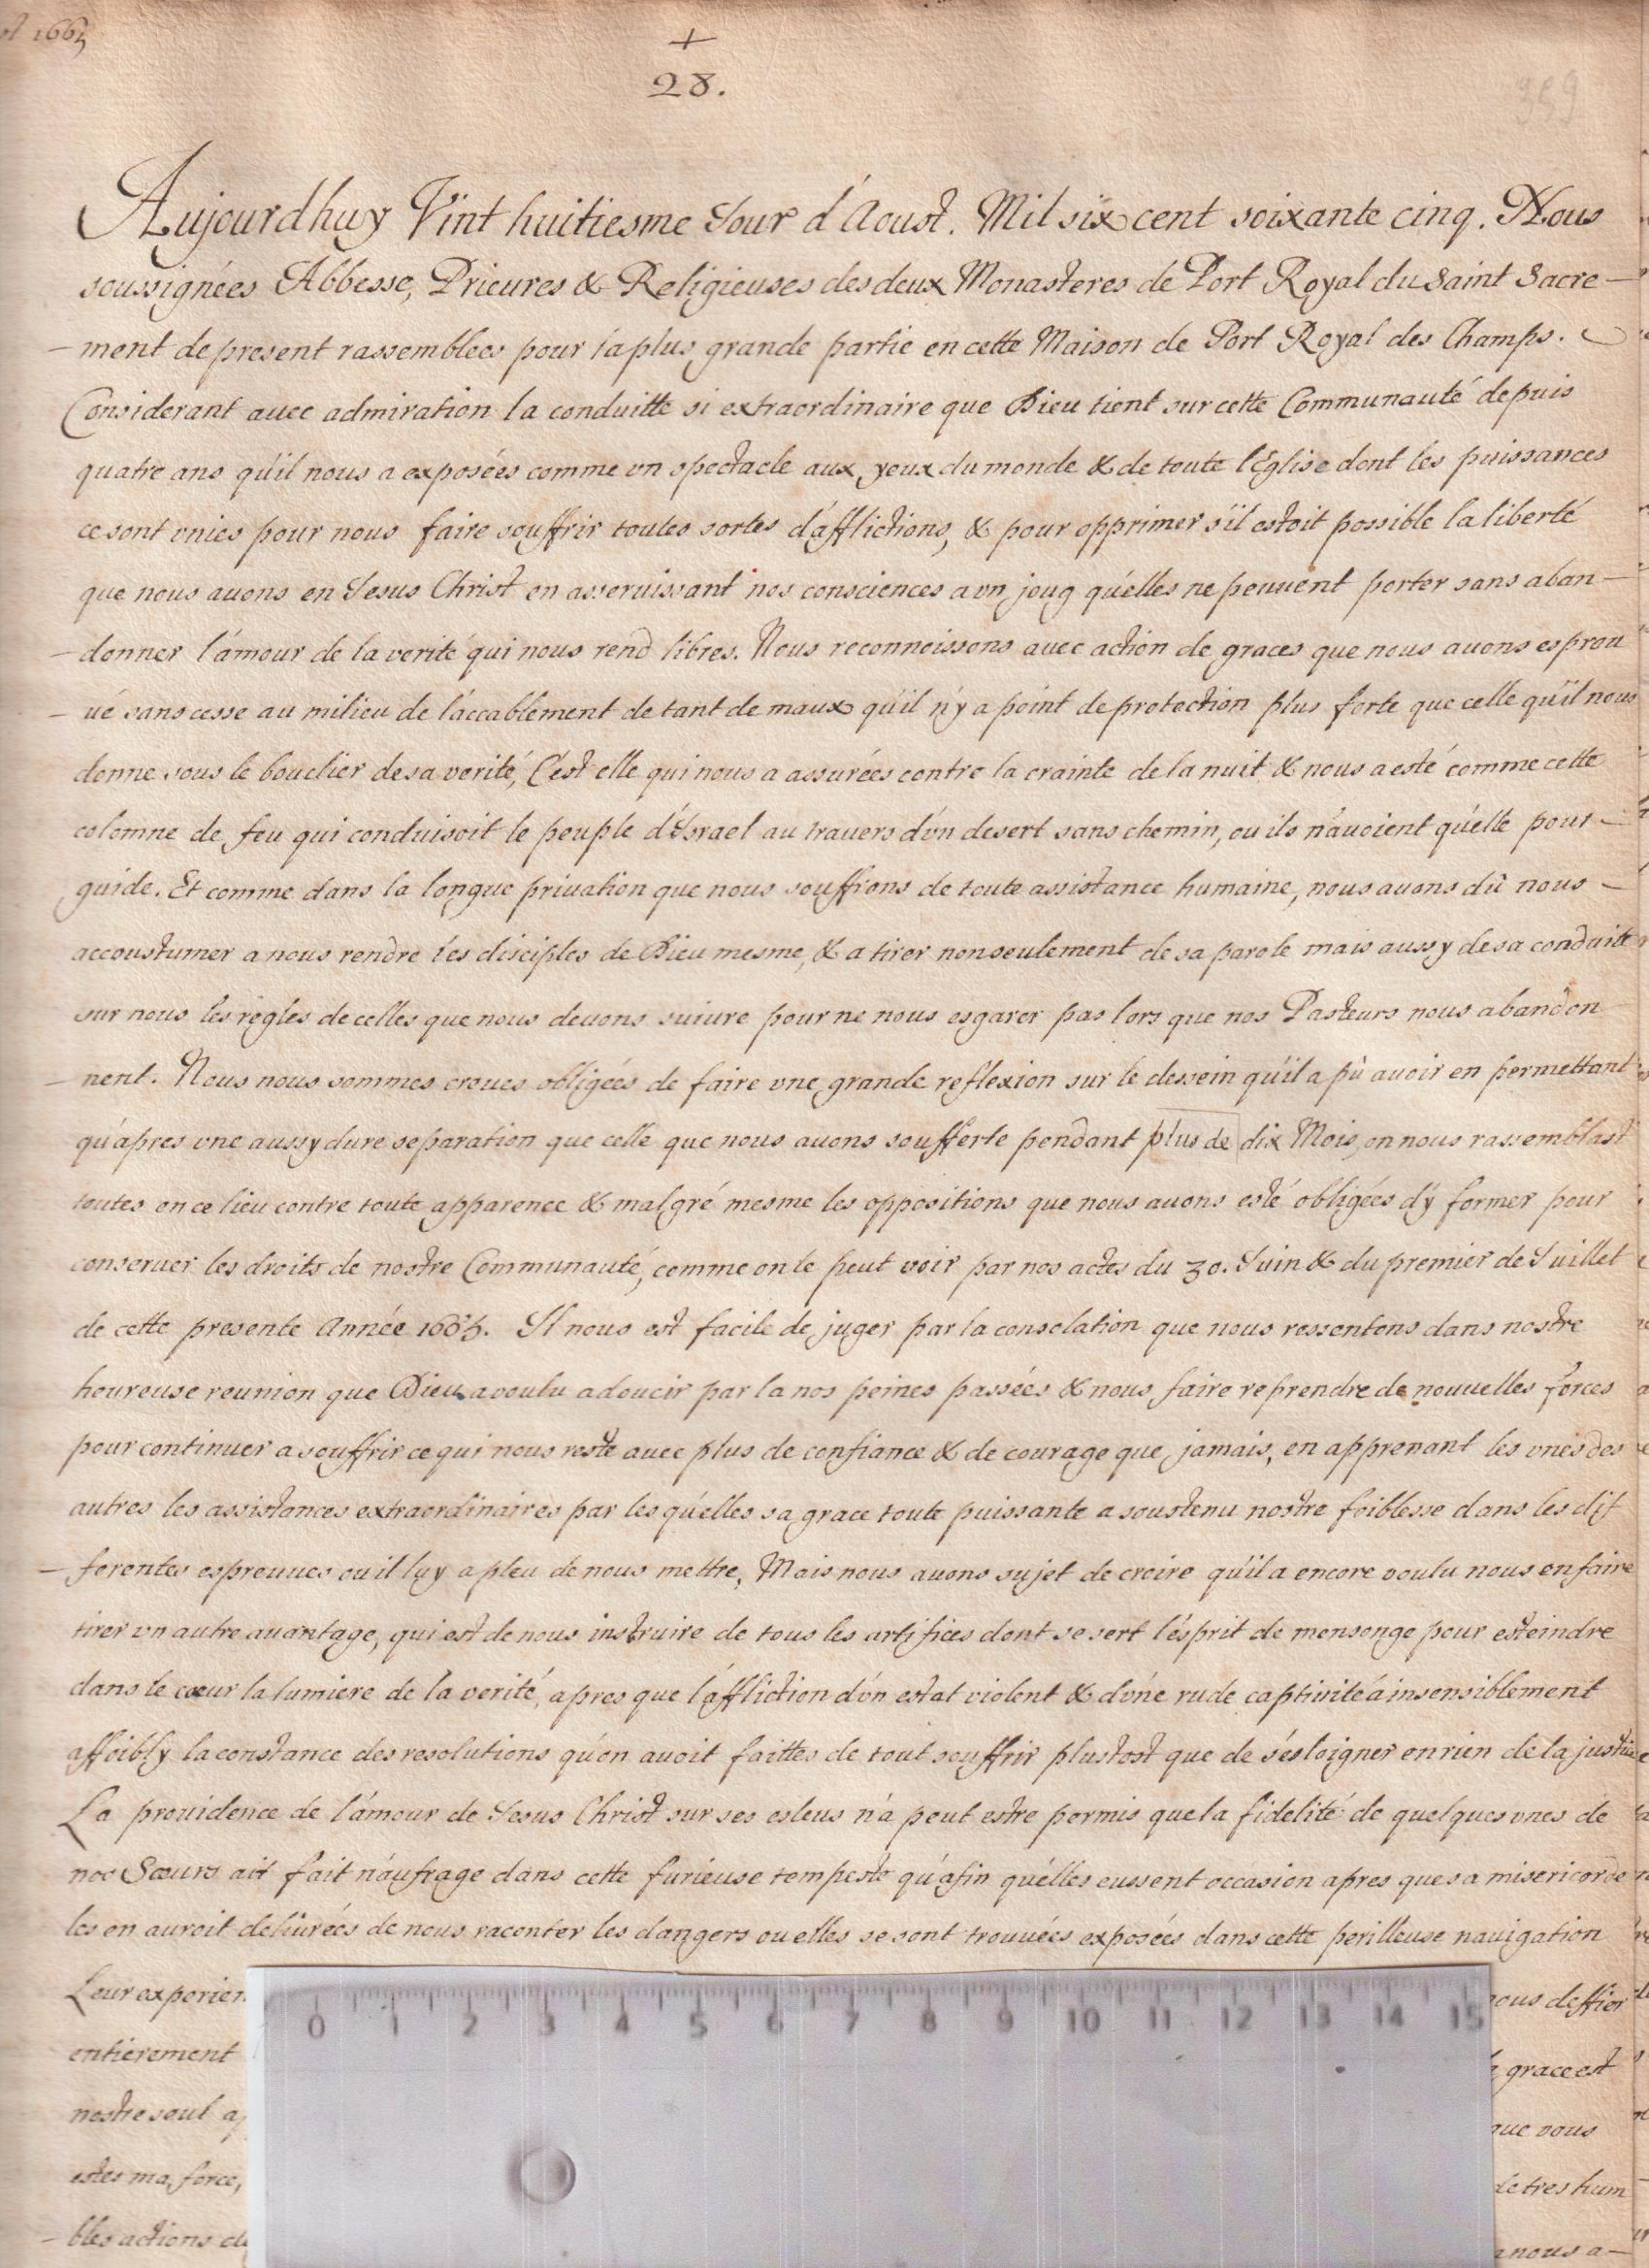 1665
+
28.
359
Aujourdhuy Vint huitiesme Jour d'Aoust. Mil six cent soixante cinq. Nous
soussignées Abbesse, Prieures & Religieuses des deux Monasteres de Port Royal du Saint Sacre-
-ment de present rassemblees pour la plus grande partie en cette Maison de Port Royal des Champs.
Considerant avec admiration la conduitte si extraordinaire que Dieu tient sur cette Communauté depuis
quatre ans qu'il nous a exposées comme vn spectacle aux yeux du monde & de toute l'Eglise dont les puissances
ce sont vnies pour nous faire souffrir toutes sortes d'afflictions, & pour opprimer s'il estoit possible la liberté
que nous auons en Jesus Christ en asseruissant nos consciences a vn joug qu'elles ne peuuent porter sans aban-
-donner l'amour de la verité qui nous rend libres. Nous reconnoissons auec action de graces que nous auons esprou
-ué sans cesse au milieu de l'accablement de tant de maux qu'il n'y a point de protection plus forte que celle qu'il nous
donne sous le bouclier de sa verité, C'est elle qui nous a assurées contre la crainte de la nuit & nous a esté comme cette
colomne de feu qui conduisoit le peuple d'Israel au trauers d'vn desert sans chemin, ou ils n'auoient qu'elle pour-
guide. Et comme dans la longue priuation que nous souffrons de toute assistance humaine, nous auons dû nous-
accoustumer a nous rendre les disciples de Dieu mesme, & a tirer non seulement de sa parole mais aussy de sa conduitte
sur nous les regles de celles que nous deuons suiure pour ne nous esgarer pas lors que nos Pasteurs nous abandon
-nent. Nous nous sommes creues obligées de faire vne grande reflexion sur le dessein qu'il a pû auoir en permettant
qu'apres vne aussy dure separation que celle que nous auons soufferte pendant plus de dix Mois, on nous rassemblast
toutes en ce lieu contre toute apparence & malgré mesme les oppositions que nous auons esté obligées d'y former pour
conseruer les droits de nostre Communauté, comme on le peut voir par nos actes du 30. Juin & du premier de Juillet
de cette presente Année 1665. Il nous est facile de juger par la consolation que nous ressentons dans nostre
heureuse reunion que Dieu a voulu adoucir par la nos peines passées & nous faire reprendre de nouuelles forces
pour continuer a souffrir ce qui nous reste auec plus de confiance & de courage que jamais, en apprenant les vnes des
autres les assistances extraordinaires par les qu'elles sa grace toute puissante a soustenu nostre foiblesse dans les dif
-ferentes espreuues ou il luy a pleu de nous mettre, Mais nous auons sujet de croire qu'il a encore voulu nous en faire
tirer vn autre auantage, qui est de nous instruire de tous les artifices dont se sert l'esprit de mensonge pour esteindre
dans le cœur la lumiere de la verité, apres que l'affliction d'vn estat violent & d'vne rude captiuité a insensiblement
affoibly la constance des resolutions qu'on auoit faittes de tout souffrir plustost que de s'esloigner en rien de la justice
La prouidence de l'amour de Jesus Christ sur ses esleus n'a peut estre permis que la fidelité de quelques vnes de
nos Sœurs ait fait naufrage dans cette furieuse tempeste qu'afin qu'elles eussent occasion apres que sa misericorde
les en auroit deliurées de nous raconter les dangers ou elles se sont trouuées exposées dans cette perilleuse nauigation
Leur experien nous deffier
entierement grace est
nostre seul que vous
estes ma force, de tres hum
-bles actions nous a-
0 1 2 3 4 5 6 7 8 9 10 11 12 13 14 15